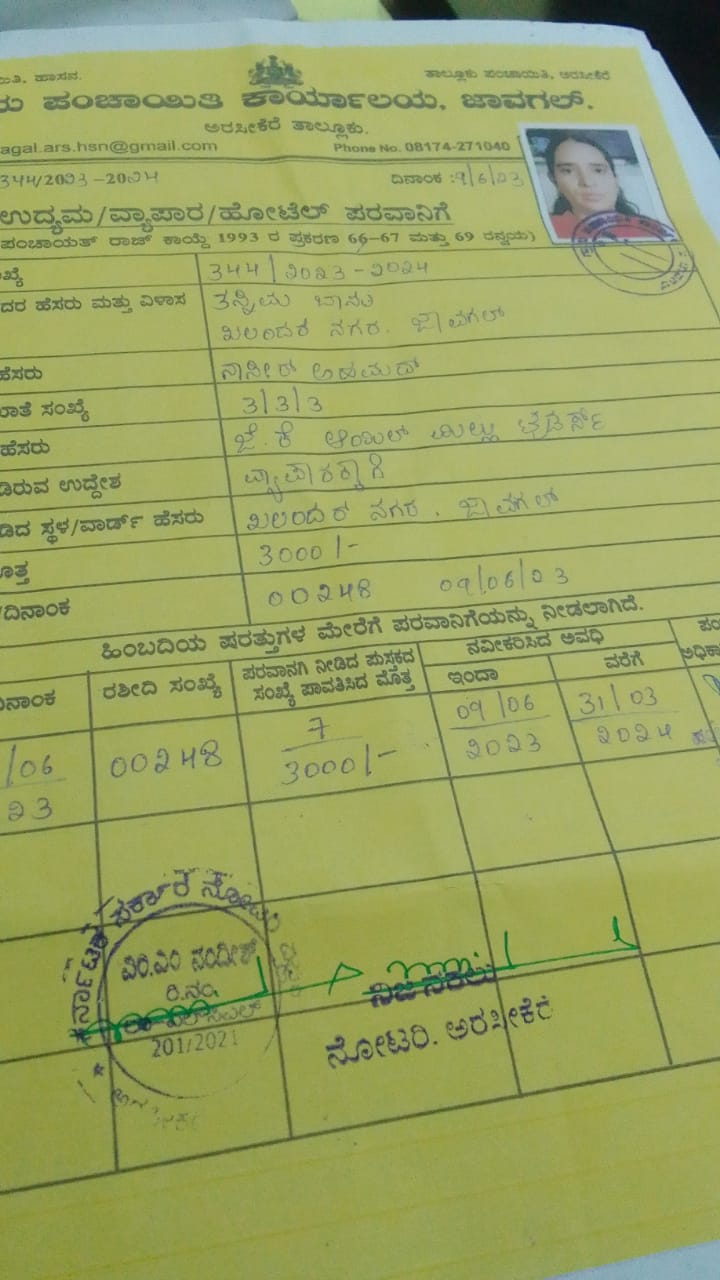 ಹಾಸನ. ತಾಲ್ಲೂಕು ಪಂಚಾಯಿತಿ, ಅರಸೀಕೆರೆ
ಪಂಚಾಯಿತಿ ಕಾರ್ಯಾಲಯ, ಜಾವಗಲ್.
ಅರಸೀಕೆರೆ ತಾಲ್ಲೂಕು.
agal.ars.hsn@gmail.com Phone No. 08174-271040
344/2023-2024 ದಿನಾಂಕ :9/6/23
ಉದ್ಯಮ/ವ್ಯಾಪಾರ/ಹೋಟೆಲ್ ಪರವಾನಿಗೆ
ಪಂಚಾಯತ್ ರಾಜ್ ಕಾಯ್ದೆ 1993 ರ ಪ್ರಕರಣ 66-67 ಮತ್ತು 69 ರನ್ವಯ)
344/೨೦೨೩-೨೦೨೪
ದರ ಹೆಸರು ಮತ್ತು ವಿಳಾಸ
ನಗರ. ಜಾವಗಲ್
ಹೆಸರು ನಾಸೀರ್ ಅಹಮದ್
ಖಾತೆ ಸಂಖ್ಯೆ 3/3/3
ಹೆಸರು ಜೆ.ಕೆ ಆಯಿಲ್ ಮಿಲ್ಲು ಟ್ರೇಡರ್ಸ್
ಉದ್ದೇಶ ವ್ಯಾಪಾರಕ್ಕಾಗಿ
ಸ್ಥಳ/ವಾರ್ಡ್ ಹೆಸರು ನಗರ. ಜಾವಗಲ್
3000/-
/ದಿನಾಂಕ 00248 09/06/23
ಹಿಂಬದಿಯ ಷರತ್ತುಗಳ ಮೇರೆಗೆ ಪರವಾನಿಗೆಯನ್ನು ನೀಡಲಾಗಿದೆ.
ರಶೀದಿ ಸಂಖ್ಯೆ
ಪರವಾನಗಿ ನೀಡಿದ ಪುಸ್ತಕದ
ಸಂಖ್ಯೆ ಪಾವತಿಸಿದ ಮೊತ್ತ
ನವೀಕರಿಸಿದ ಅವಧಿ
ಇಂದಾ ವರೆಗೆ
/06
23
00248
7
3000/-
09/06
2023
31/03
2024
ವಿ.ಎಂ
ರಿ.ನಂ.
201/2021
ನಿಜ ನಕಲು
ನೋಟರಿ. ಅರಸೀಕೆರೆ